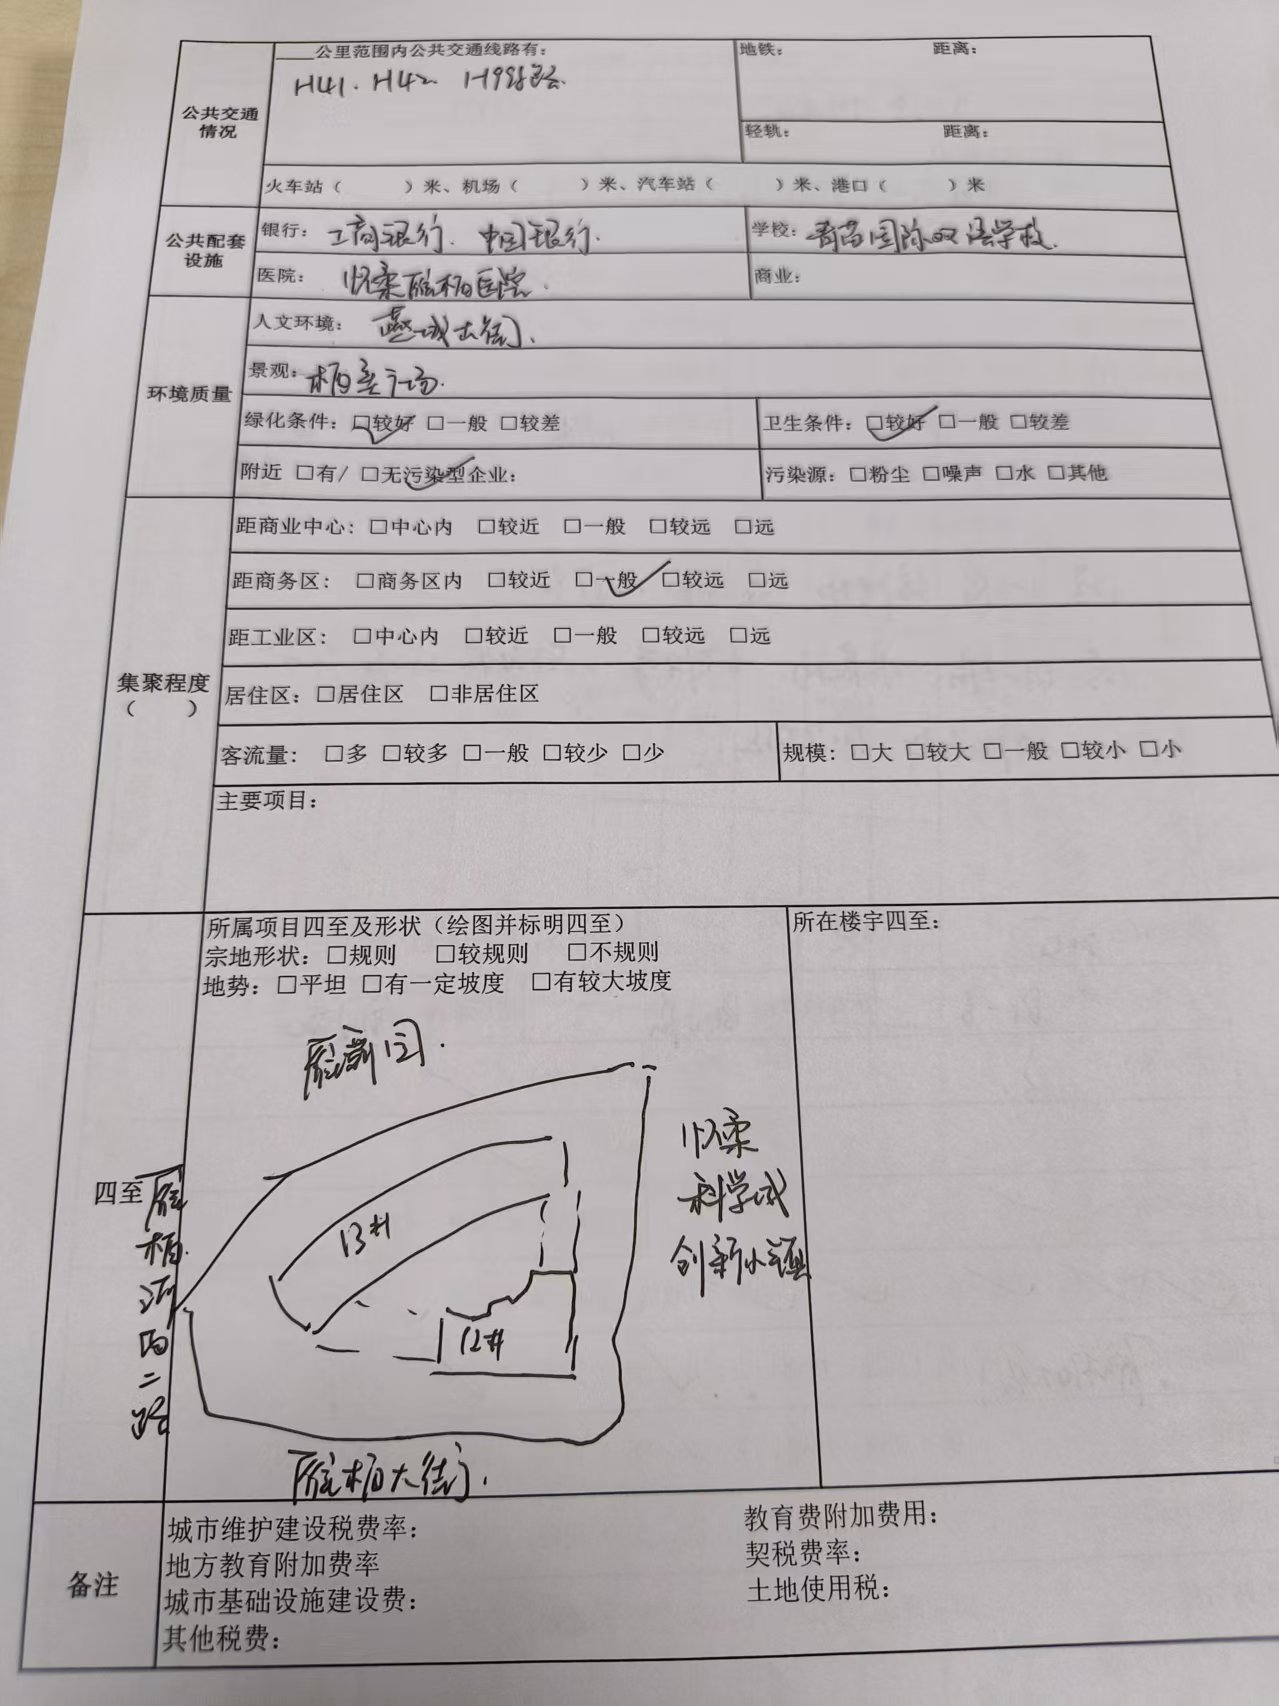 公共交通情况
____公里范围内公共交通线路有：
H41. H42 H98路.
地铁： 距离：
轻轨： 距离：
火车站（ ）米、机场（ ）米、汽车站（ ）米、港口（ ）米
公共配套设施
银行：工商银行. 中国银行.
学校：青苗国际双语学校.
医院：怀柔雁栖医院.
商业：
环境质量
人文环境：燕城古街.
景观：柏崖广场.
绿化条件：□较好 □一般 □较差
卫生条件：□较好 □一般 □较差
附近 □有/ □无污染型企业：
污染源：□粉尘 □噪声 □水 □其他
集聚程度
（ ）
距商业中心：□中心内 □较近 □一般 □较远 □远
距商务区：□商务区内 □较近 □一般 □较远 □远
距工业区：□中心内 □较近 □一般 □较远 □远
居住区：□居住区 □非居住区
客流量：□多 □较多 □一般 □较少 □少
规模：□大 □较大 □一般 □较小 □小
主要项目：
四至
所属项目四至及形状（绘图并标明四至）
宗地形状：□规则 □较规则 □不规则
地势：□平坦 □有一定坡度 □有较大坡度
所在楼宇四至：
13#
12#
怀柔
科学城
创新小镇
雁栖河西二路
雁栖大街.
备注
城市维护建设税费率：
地方教育附加费率
城市基础设施建设费：
其他税费：
教育费附加费用：
契税费率：
土地使用税：